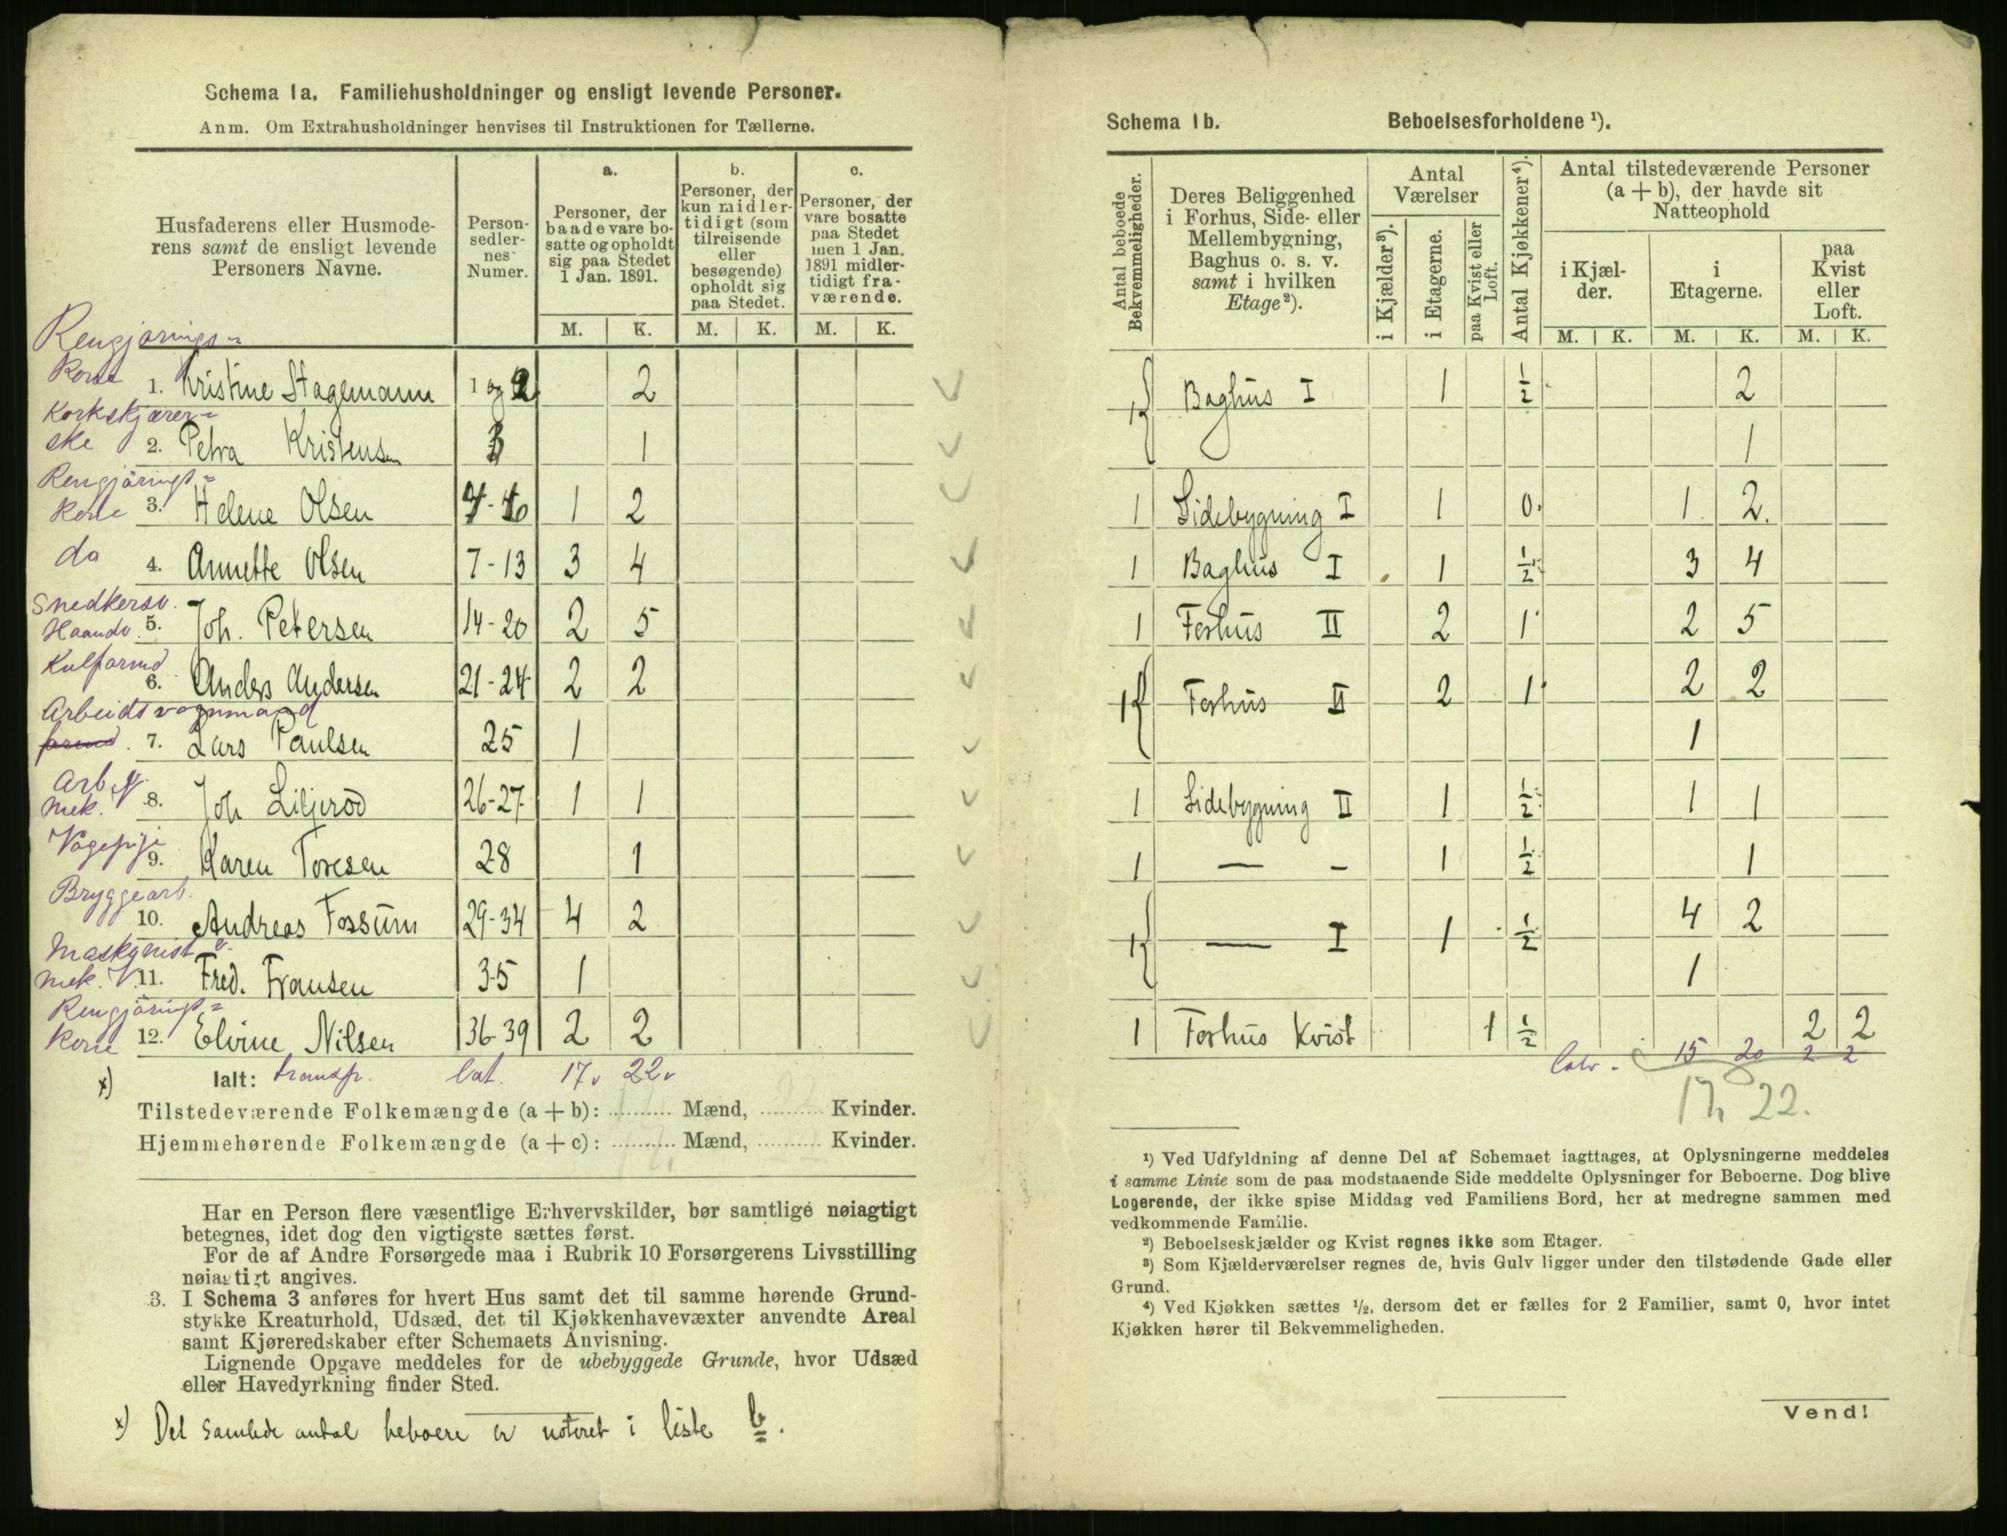 Schema 1a. Familiehusholdninger og ensligt levende Personer.
Anm. Om Extrahusholdninger henvises til Instruktionen for Tællerne.
Husfaderens eller Husmoderens samt de ensligt levende Personers Navne.
Personsedlernes Numer.
a.
Personer, der baade vare bosatte og opholdt sig paa Stedet 1 Jan. 1891.
b.
Personer, der kun midlertidigt (som tilreisende eller besøgende) opholdt sig paa Stedet.
c.
Personer, der vare bosatte paa Stedet men 1 Jan. 1891 midlertidigt fraværende.
M. K. M. K. M. K.
Rengjørings=
kone 1. Kristine Stagemann 1 og 2 2
Korkskjærer=
ske 2. Petra Kristensen 3 1
Rengjørings=
kone 3. Helene Olsen 4-6 1 2
do 4. Annette Olsen 7-13 3 4
Snedkersv.
Haandv. 5. Joh. Petersen 14-20 2 5
Kulformd
6. Anders Andersen 21-24 2 2
Arbeidsvognmand
formd. 7. Lars Paulsen 25 1
Arb.
mek. V. 8. Joh Liljerod 26-27 1 1
Vagepige
9. Karen Toresen 28 1
Bryggearb.
10. Andreas Fossum 29-34 4 2
Maskinist
mek. V. 11. Fred. Fransen 35 1
Rengjørings=
kone 12. Elvine Nilsen 36-39 2 2
x) Ialt: transp. lat. 17 22
Tilstedeværende Folkemængde (a + b): Mænd, Kvinder.
Hjemmehørende Folkemængde (a + c): Mænd, Kvinder.
Har en Person flere væsentlige Erhvervskilder, bør samtlige nøiagtigt
betegnes, idet dog den vigtigste sættes først.
For de af Andre Forsørgede maa i Rubrik 10 Forsørgerens Livsstilling
nøiagtigt angives.
3. I Schema 3 anføres for hvert Hus samt det til samme hørende Grund-
stykke Kreaturhold, Udsæd, det til Kjøkkenhavevæxter anvendte Areal
samt Kjøreredskaber efter Schemaets Anvisning.
Lignende Opgave meddeles for de ubebyggede Grunde, hvor Udsæd
eller Havedyrkning finder Sted.
x) Det samlede antal beboere er noteret i liste b.
Schema 1b. Beboelsesforholdene ¹).
Antal beboede Bekvemmeligheder.
Deres Beliggenhed i Forhus, Side- eller Mellembygning, Baghus o. s. v. samt i hvilken Etage²).
Antal Værelser
i Kjælder³).
i Etagerne.
paa Kvist eller Loft.
Antal Kjøkkener⁴).
Antal tilstedeværende Personer (a + b), der havde sit Natteophold
i Kjælder.
i Etagerne.
paa Kvist eller Loft.
M. K. M. K. M. K.
1 Baghus I 1 ½ 2
1
1 Sidebygning I 1 0 1 2
1 Baghus I 1 ½ 3 4
1 Forhus II 2 1 2 5
1 Forhus II 2 1 2 2
1
1 Sidebygning II 1 ½ 1 1
1 — - 1 ½ 1
1 — I 1 ½ 4 2
1
1 Forhus Kvist 1 ½ 2 2
15 20 2 2
17 22.
¹) Ved Udfyldning af denne Del af Schemaet iagttages, at Oplysningerne meddeles
i samme Linie som de paa modstaaende Side meddelte Oplysninger for Beboerne. Dog blive
Logerende, der ikke spise Middag ved Familiens Bord, her at medregne sammen med
vedkommende Familie.
²) Beboelseskjælder og Kvist regnes ikke som Etager.
³) Som Kjælderværelser regnes de, hvis Gulv ligger under den tilstødende Gade eller
Grund.
⁴) Ved Kjøkken sættes ½, dersom det er fælles for 2 Familier, samt 0, hvor intet
Kjøkken hører til Bekvemmeligheden.
Vend!